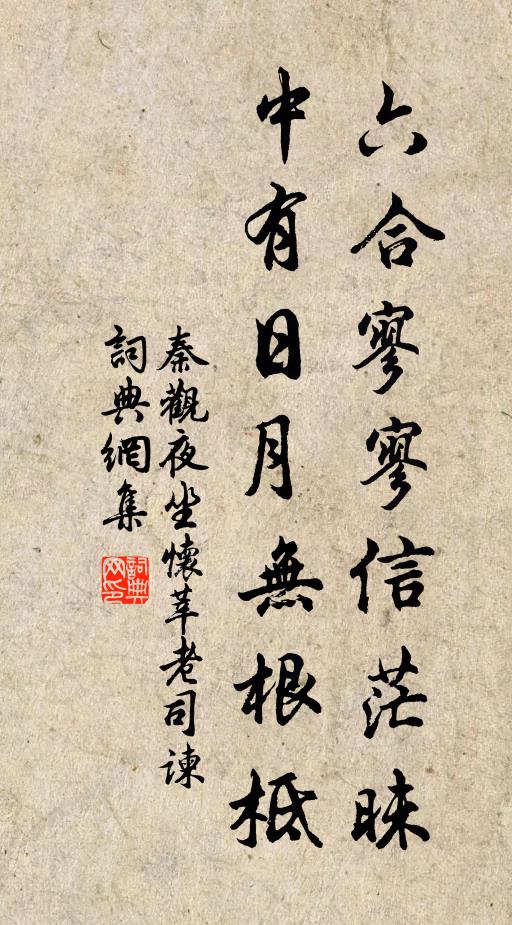 六合寥寥信茫昧
中有日月無根柢
秦觀夜坐懷莘老司諫
詞典網集
詞典網印